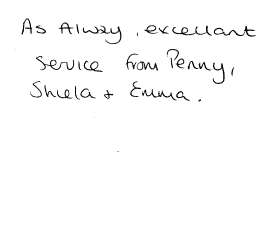 As Alway, excellant
Service from Penny,
Shiela & Emma.